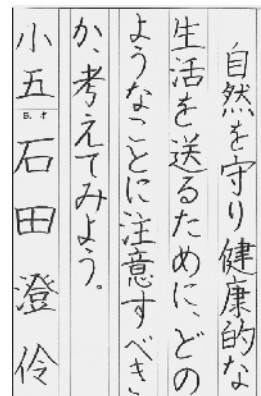 自然を守り健康的な
生活を送るために、どの
ようなことに注意すべき
か、考えてみよう。
小五 石田澄伶